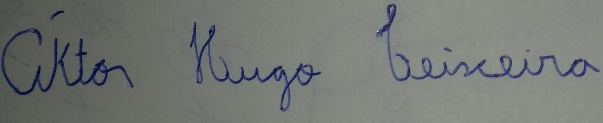 Ciktor Hugo Teixeira